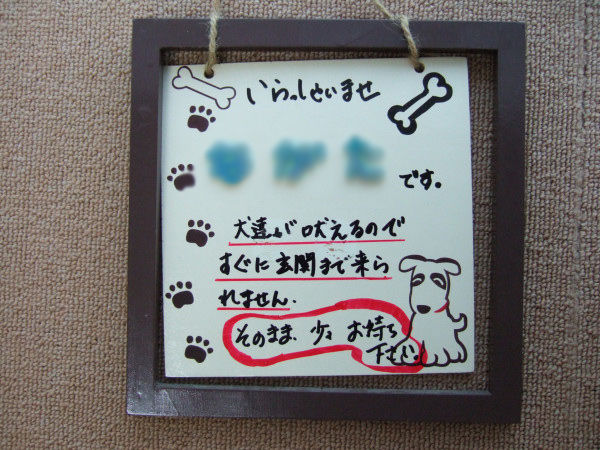 いらっしゃいませ
です。
犬達が吠えるので
すぐに玄関まで来ら
れません.
そのまま、少々お待ち
下さい。